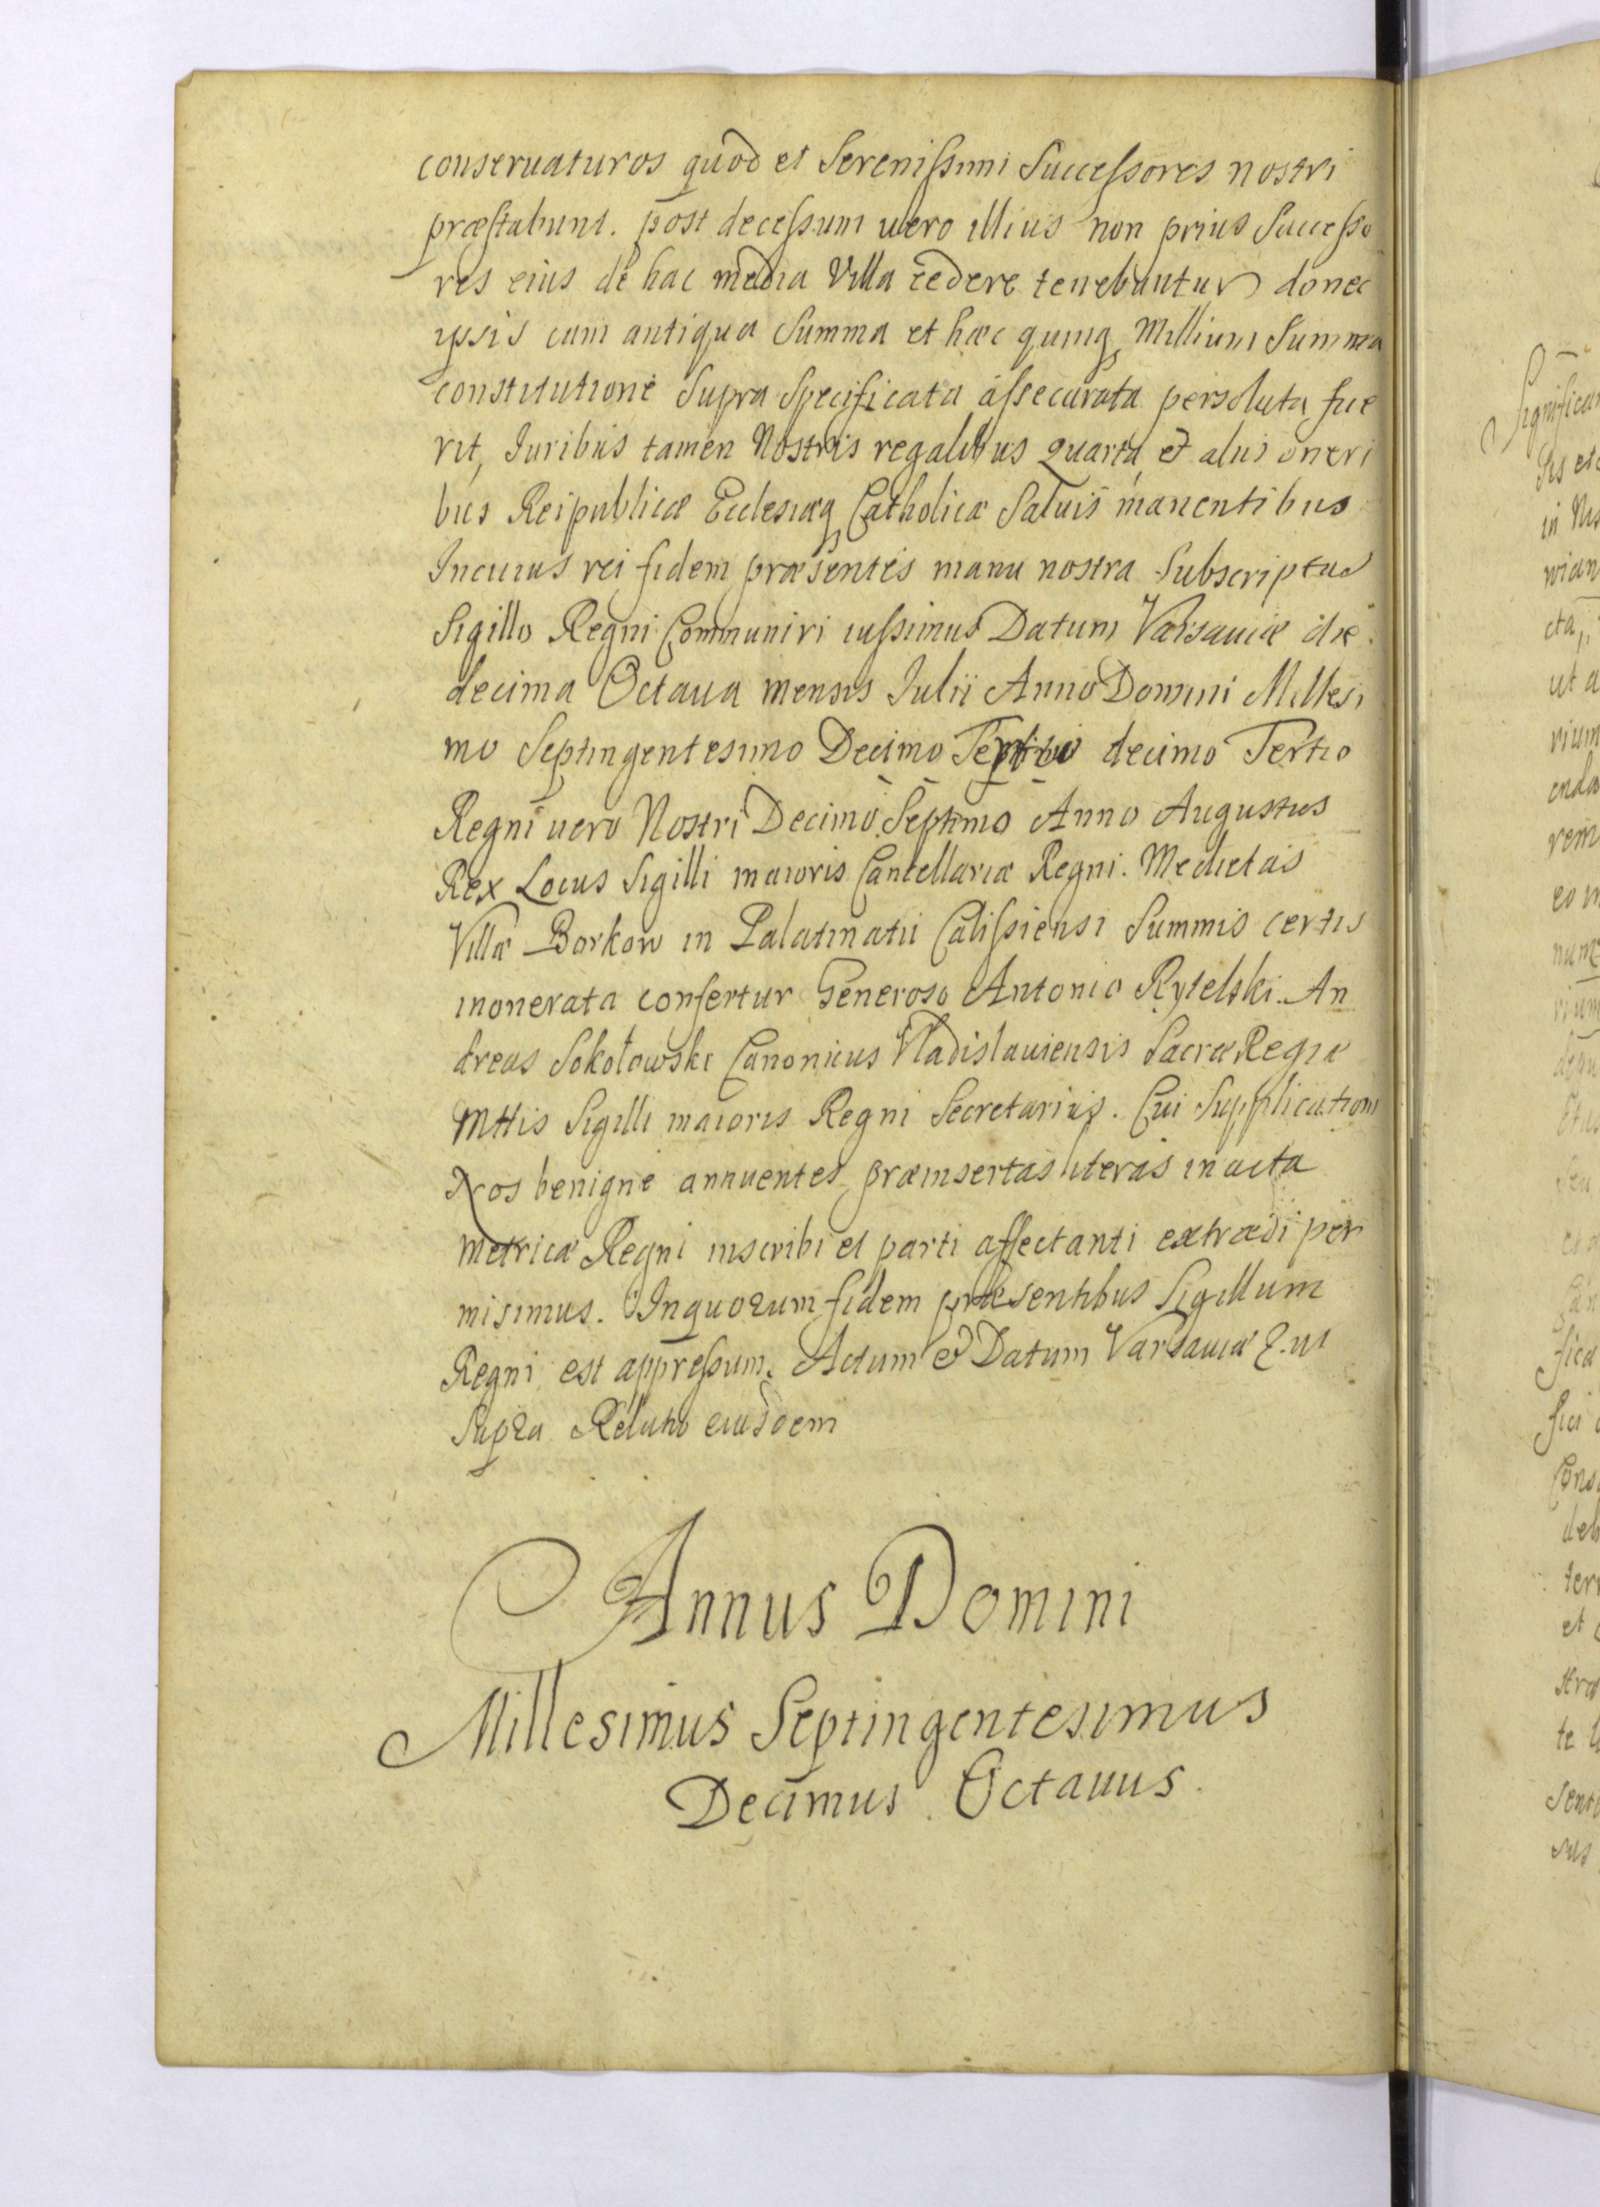 conseruaturos quod et Serenissimi Successores nostri
præstabunt. post decessum uero illius non prius Successo
res eius de hac media Villa cedere tenebuntur donec
ipsis cum antiqua Summa et hæc quinq Millium Summa
constitutione Supra Specificata assecurata persoluta fue
rit, Iuribus tamen Nostris regalibus quarta et aliis oneri
bus Reipublicæ Ecclesiæq Catholicæ Saluis manentibus
Incuius rei fidem præsentes manu nostra Subscriptas
Sigillo Regni Communiri iussimus Datum Varsauiæ die
decima Octaua mensis Iulii Anno Domini Millesi
mo Septingentesimo Decimo decimo Tertio
Regni uero Nostri Decimo Septimo Anno Augustus
Rex Locus Sigilli maioris Cancellariæ Regni. Medietas
Villæ Borkow in Palatinatu Calissiensi Summis certis
inonerata confertur Generoso Antonio Rytelski. An
dreas Sokołowski Canonicus Vladislauiensis Sacræ Regiæ
Mttis Sigilli maioris Regni Secretarius. Cui Supplicationi
Nos benigne annuentes præinsertas literas in acta
metricæ Regni inscribi et parti affectanti extradi per
misimus. Inquorum fidem præsentibus Sigillum
Regni est appressum. Actum et Datum Varsauiæ ut
Supra Relatio eiusdem
Annus Domini
Millesimus Septingentesimus
Decimus Octauus.